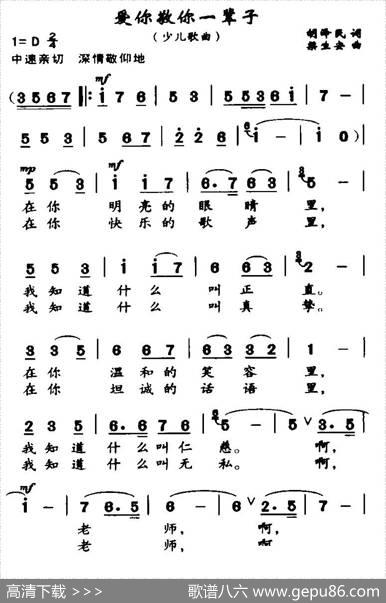 爱你敬你一辈子
(少儿歌曲)
胡泽民 词
梁生安 曲
1=D 2/4
中速亲切 深情敬仰地
mf
(3 5 6 7 ‖: i i 7 6 | 5 3 | 5 5 3 5 6 i | 7 – |
mp mf
5 5 3 | i i 7 | 6· 7 6 3 | 5 – |
在你 明亮的 眼睛 里,
在你 快乐的 歌声 里,
5 5 3 | i i 7 | 6 6 3 | 2 – |
我知道 什么 叫正 直。
我知道 什么 叫真 挚。
3 3 5 | 6 6 7 | 6 3 3 2 | 1 – |
在你 温和的 笑容 里,
在你 坦诚的 话语 里,
2 3 5 | 6· 6 7 6 | 5 – | 5 ∨ 3· 5 |
我知道 什么叫仁 慈。 啊,
我知道 什么叫无 私。 啊,
mf
i – | 7 6· 5 | 6 – | 6 ∨ 2· 5 | 7 – |
老 师, 啊,
老 师, 啊
高清下载 >>> 歌谱八六 www.gepu86.com